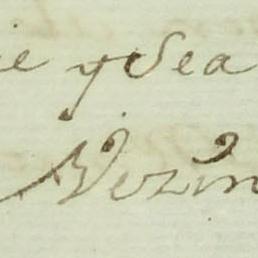 ie y Sea
Vezin